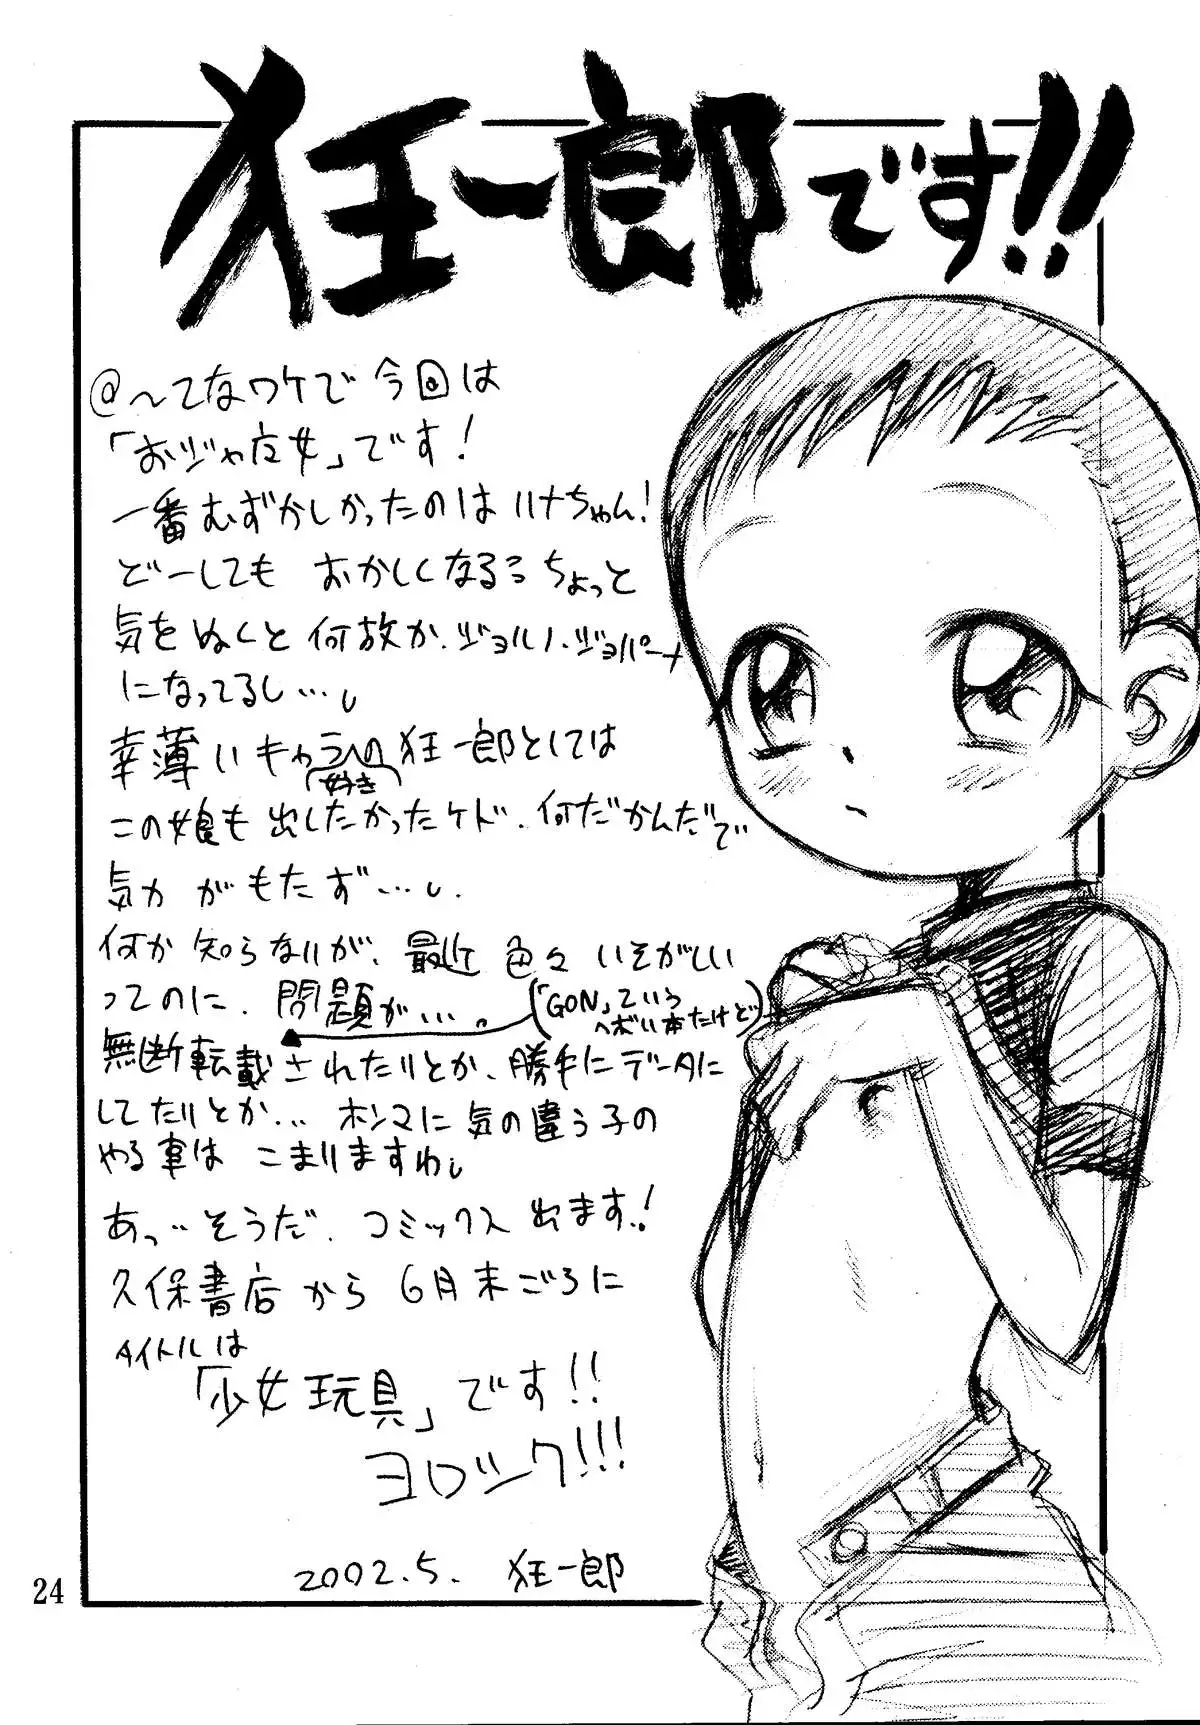 狂一郎です!!
@〜てなワケで今回は
「おジャ魔女」です!
一番むずかしかったのはハナちゃん!
どーしても おかしくなる
ちょっと
気をぬくと何故か、ジョルノ・ジョバーナ
になってるし…
幸薄いキャラへの狂一郎としては
好き
この娘も出したかったケド、何だかんだで
気力がもたず…
何か知らないが、最近 色々 いそがしい
ってのに、問題が…。
(「GON」ていう
ヘボい本だけど)
無断転載されたりとか、勝手にデータに
してたりとか… ホンマに気の違う子の
やる事は こまりますわ
あっ…そうだ、コミックス出ます!
久保書店から 6月末ごろに
タイトルは
「少女玩具」です!!
ヨロシク!!!
2002.5. 狂一郎
24